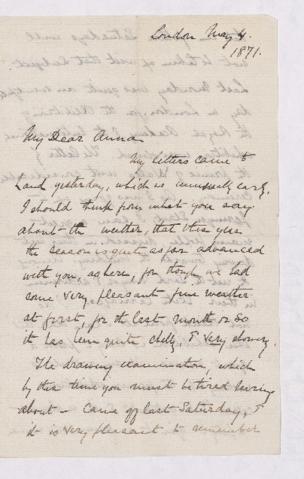 London May 4.
1871.
My Dear Anna
My letters came to
hand yesterday, which is unusually early.
I should think from what you say
about the weather, that this year
the season is quite as far advanced
with you, as here, for though we had
some very pleasant fine weather
at first, for the last month or so
it has been quite chilly, & very showery.
The drawing examination, which
by this time you must be tired hearing
about – came off last Saturday, &
it is very pleasant to remember